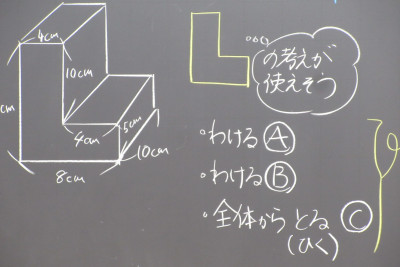 4cm
10cm
cm
4cm
5cm
10cm
8cm
の考えが
使えそう
・わけるⒶ
・わけるⒷ
・全体から とる Ⓒ
(ひく)